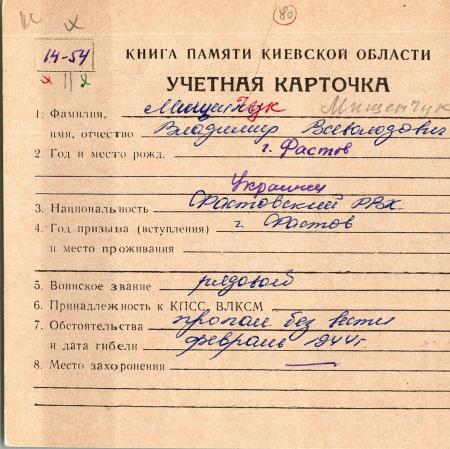 И X
80
14-54
X || X
КНИГА ПАМЯТИ КИЕВСКОЙ ОБЛАСТИ
УЧЕТНАЯ КАРТОЧКА
1. Фамилия, Мищенчук Мищенчук
имя, отчество Владимир Всеволодович
2. Год и место рожд. г. Фастов
Украинец
3. Национальность Фастовский РВК
4. Год призыва (вступления) г. Фастов
и место проживания
5. Воинское звание рядовой
6. Принадлежность к КПСС, ВЛКСМ
7. Обстоятельства пропал без вести
и дата гибели февраль 1944г.
8. Место захоронения —